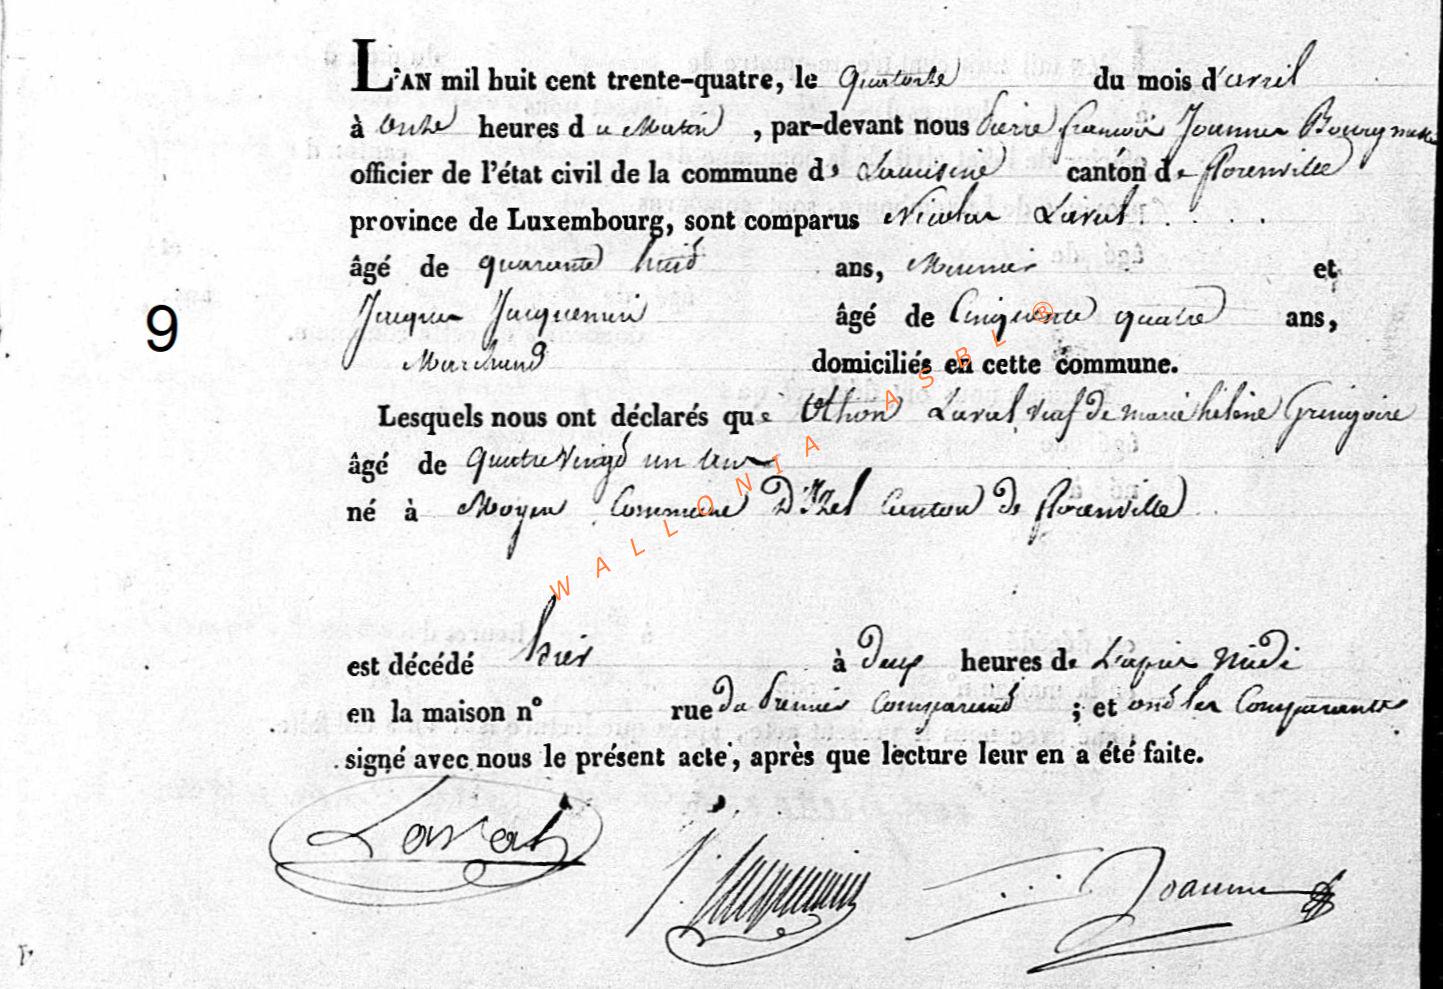 L'AN mil huit cent trente-quatre, le quatorze du mois d'avril
à onze heures du matin, par-devant nous Pierre françois Joannes Bourgmestre
officier de l'état civil de la commune de canton de florenville
province de Luxembourg, sont comparus Nicolas Laval
âgé de quarante huit ans, Meunier et
9
Jacques Jacquemin âgé de Cinquante quatre ans,
Marchand domiciliés en cette commune.
Lesquels nous ont déclarés que Othon Laval veuf de marie hélène Gringoire
âgé de quatre vingt un ans
né à Moyen Commune D'Izel Canton de florenville
WALLONIA ASBL ®
est décédé hier à deux heures de L'après midi
en la maison n° rue du Premier Comparant ; et ont les Comparants
signé avec nous le présent acte, après que lecture leur en a été faite.
Laval
J. Jacquemin
Joannes